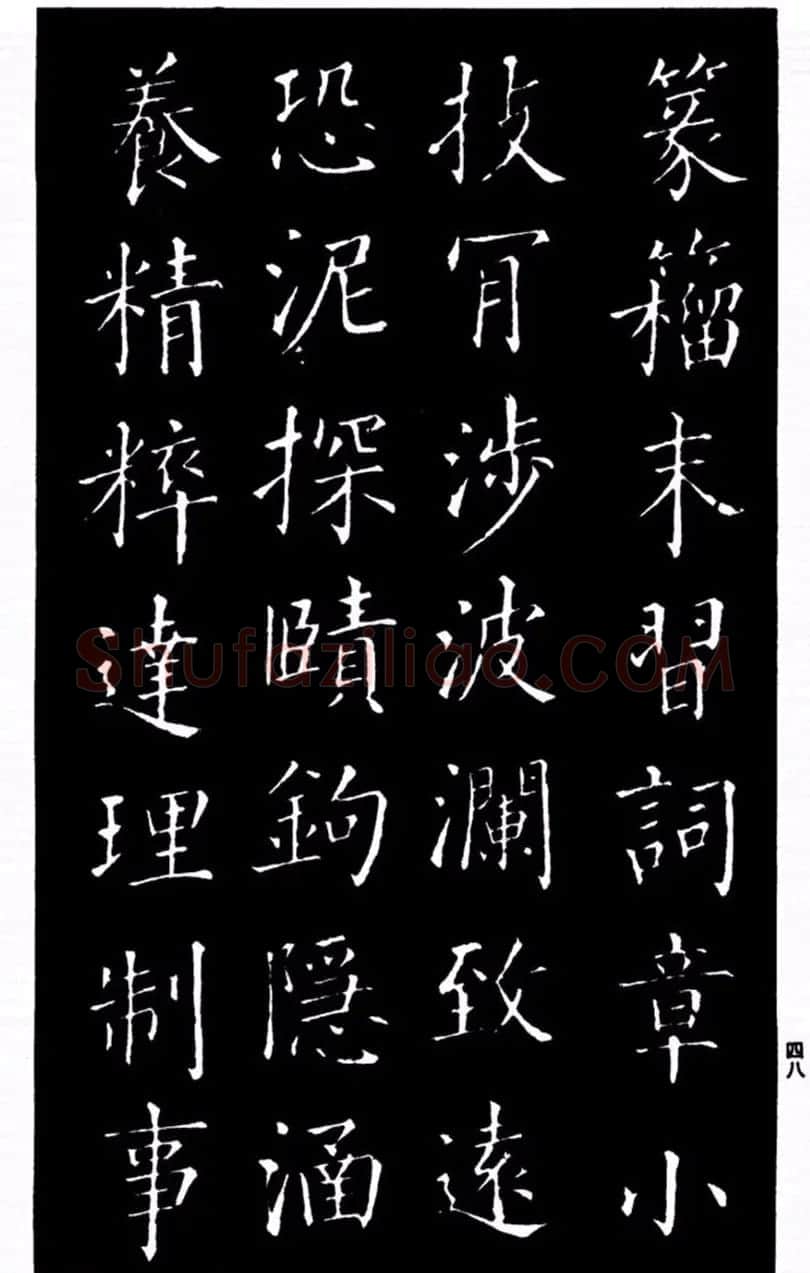 篆籀末習詞章小
技冐涉波瀾致遠
恐泥探賾鉤隱涵
養精粹達理制事
四八
Shufaziliao.COM